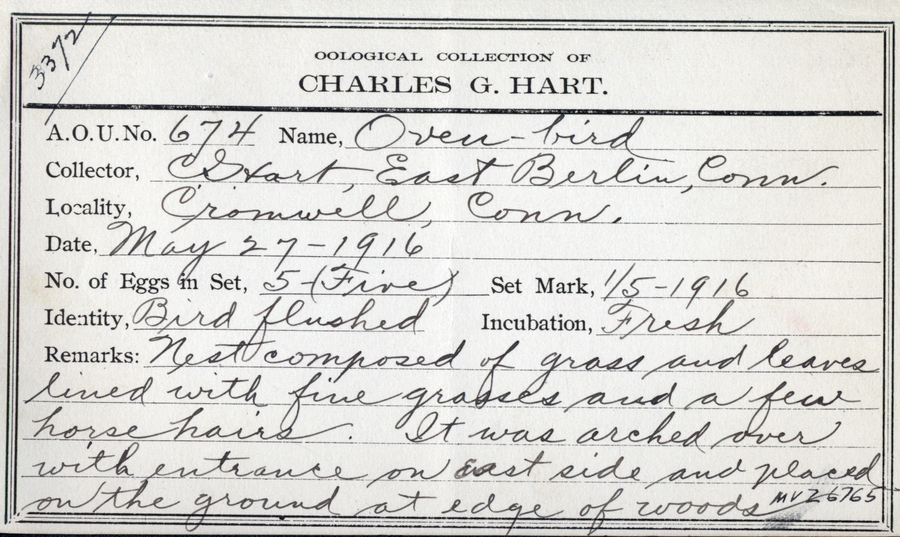 3372
OOLOGICAL COLLECTION OF
CHARLES G. HART.
A.O.U. No. 674 Name, Oven-bird
Collector, CGHart, East Berlin, Conn.
Locality, Cromwell, Conn.
Date, May 27-1916
No. of Eggs in Set, 5-(Five) Set Mark, 1/5-1916
Identity, Bird flushed Incubation, Fresh
Remarks: Nest composed of grass and leaves
lined with fine grasses and a few
horse hairs. It was arched over
with entrance on east side and placed
on the ground at edge of woods
MVZ6765